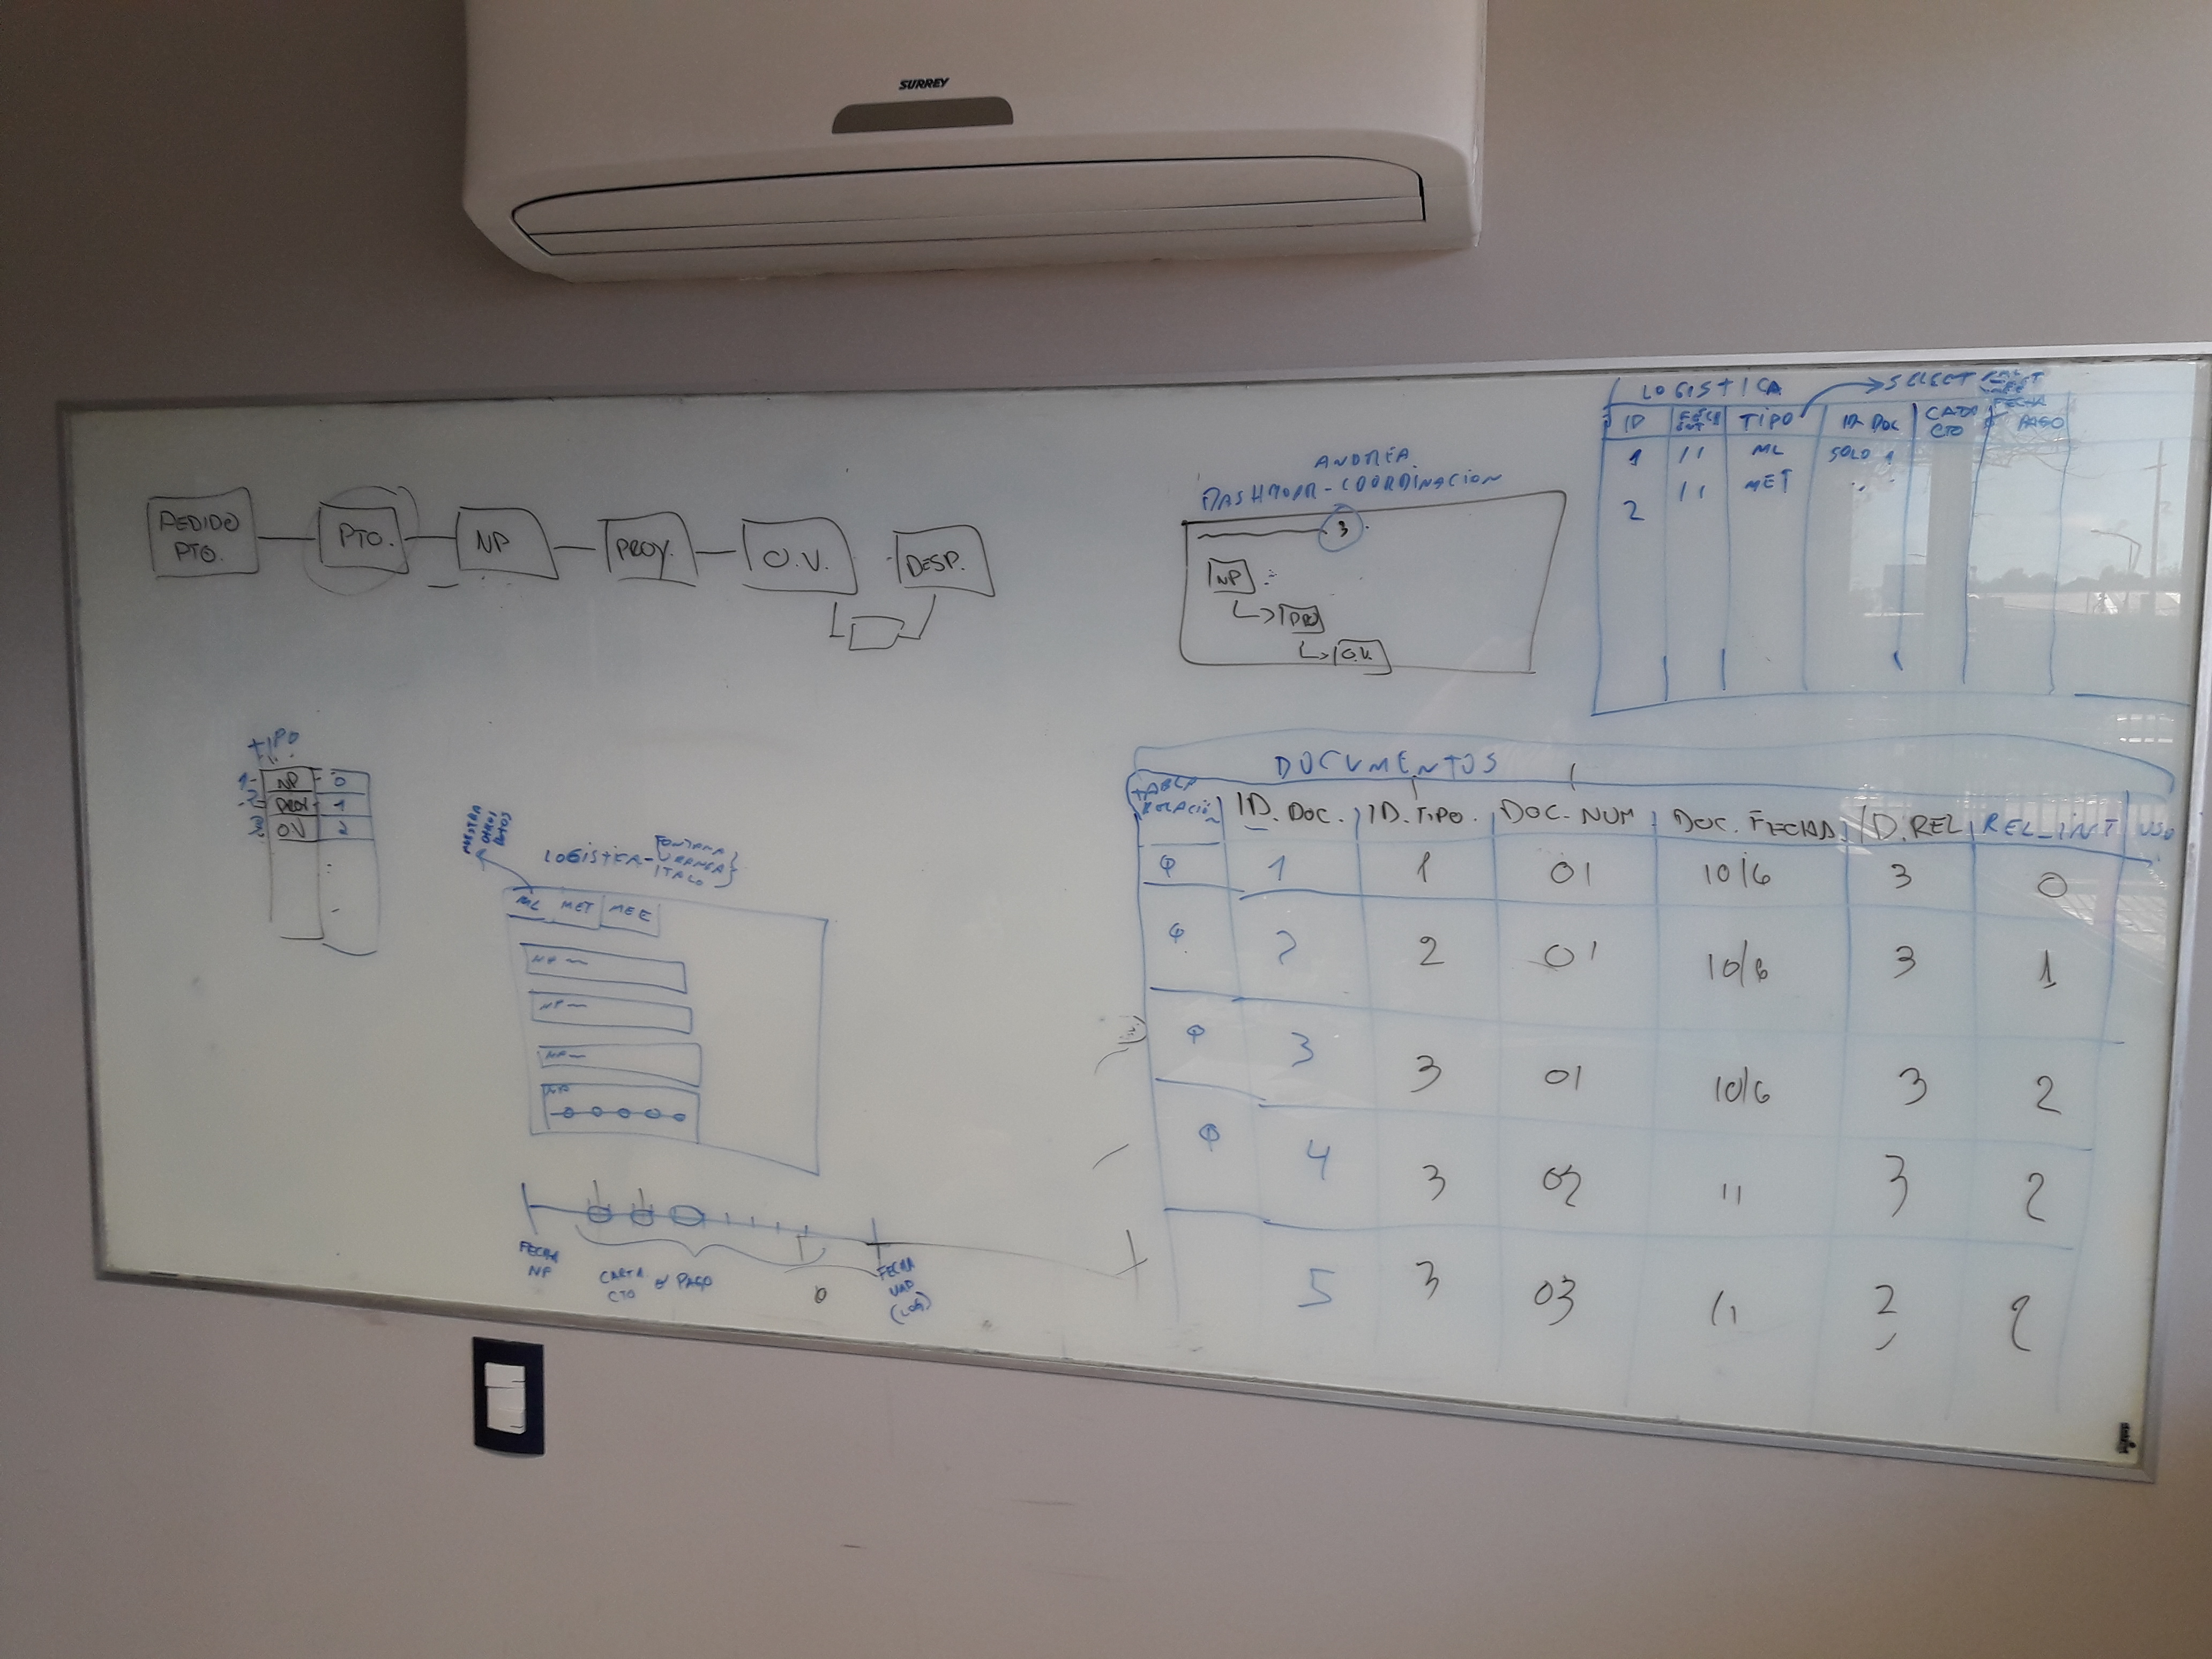 SURREY
PEDIDO
PTO.
PTO.
NP
PROY.
O.V.
DESP.
ANDREA
DASHBOAR-COORDINACION
3
NP
O.V.
LOGISTICA
SELECT
ID
TIPO
ID DOC
CTO
FECHA
PAGO
1 / / ML SOLO 1
2 / / MET
TIPO
1- NP 0
PROY 1
OV 2
MUESTRA
OTROS
DATOS
LOGISTICA-
FONTANA
ITALO
ML MET MEE
NP
NP
NP
NP
FECHA
NP
CARTA
CTO
PAGO
0
FECHA
(LOG)
DOCUMENTOS
TABLA
RELACIÓN
ID. DOC. ID. TIPO. DOC. NUM DOC. FECHA ID. REL REL_INT USO
1 1 01 10/6 3 0
2 2 01 10/6 3 1
3 3 01 10/6 3 2
4 3 02 11 3 2
5 3 03 11 3 2